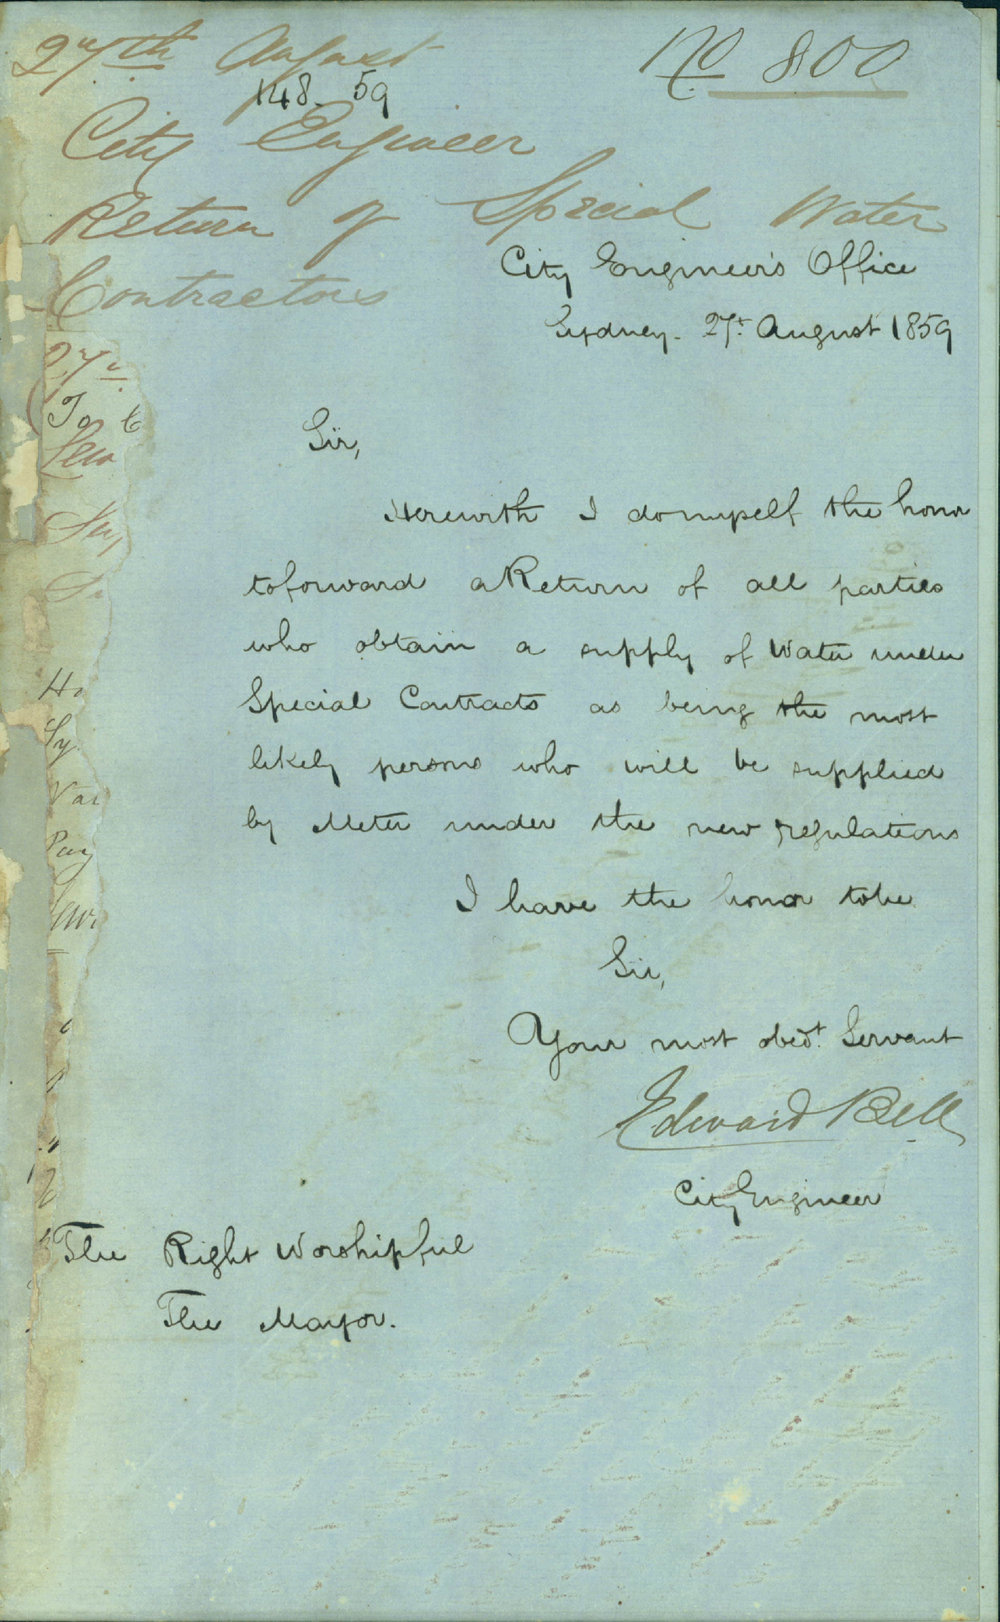 27th August
No 800
148. 59
City Engineer
Return of Special Water
Contractors
City Engineer's Office
Sydney. 27t August 1859
Sir,
Herewith I do myself the honor
to forward a Return of all parties
who obtain a supply of Water under
Special Contracts as being the most
likely persons who will be supplied
by Meter under the new regulations
I have the honor to be
Sir,
Your most obedt. Servant
Edward Bell
City Engineer
The Right Worshipful
The Mayor.